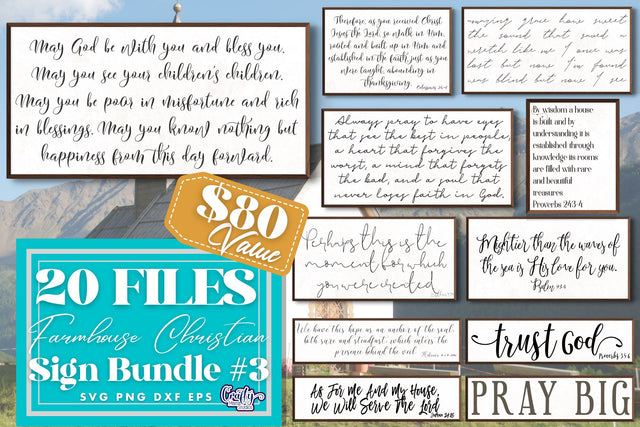 May God be with you and bless you.
May you see your children's children.
May you be poor in misfortune and rich
in blessings. May you know nothing but
happiness from this day forward.
Therefore, as you received Christ
Jesus the Lord, so walk in Him,
rooted and built up in Him and
established in the faith, just as you
were taught, abounding in
thanksgiving.
Colossians 2:6-7
amazing grace how sweet
the sound that saved a
wretch like me I once was
lost but now I'm found
was blind but now I see
Always pray to have eyes
that see the best in people,
a heart that forgives the
worst, a mind that forgets
the bad, and a soul that
never loses faith in God.
By wisdom a house
is built and by
understanding it is
established through
knowledge its rooms
are filled with rare
and beautiful
treasures
Proverbs 24:3-4
$80
Value
Perhaps this is the
moment for which
you were created
Mightier than the waves of
the sea is His love for you.
Psalm 93:4
20 FILES
Farmhouse Christian
Sign Bundle #3
SVG PNG DXF EPS
Crafty
Mama
Studios
We have this hope as an anchor of the soul,
both sure and steadfast, which enters the
presence behind the veil.
trust God
Proverbs 3:5-6
As For Me And My House,
We Will Serve The Lord
Joshua 24:15
PRAY BIG